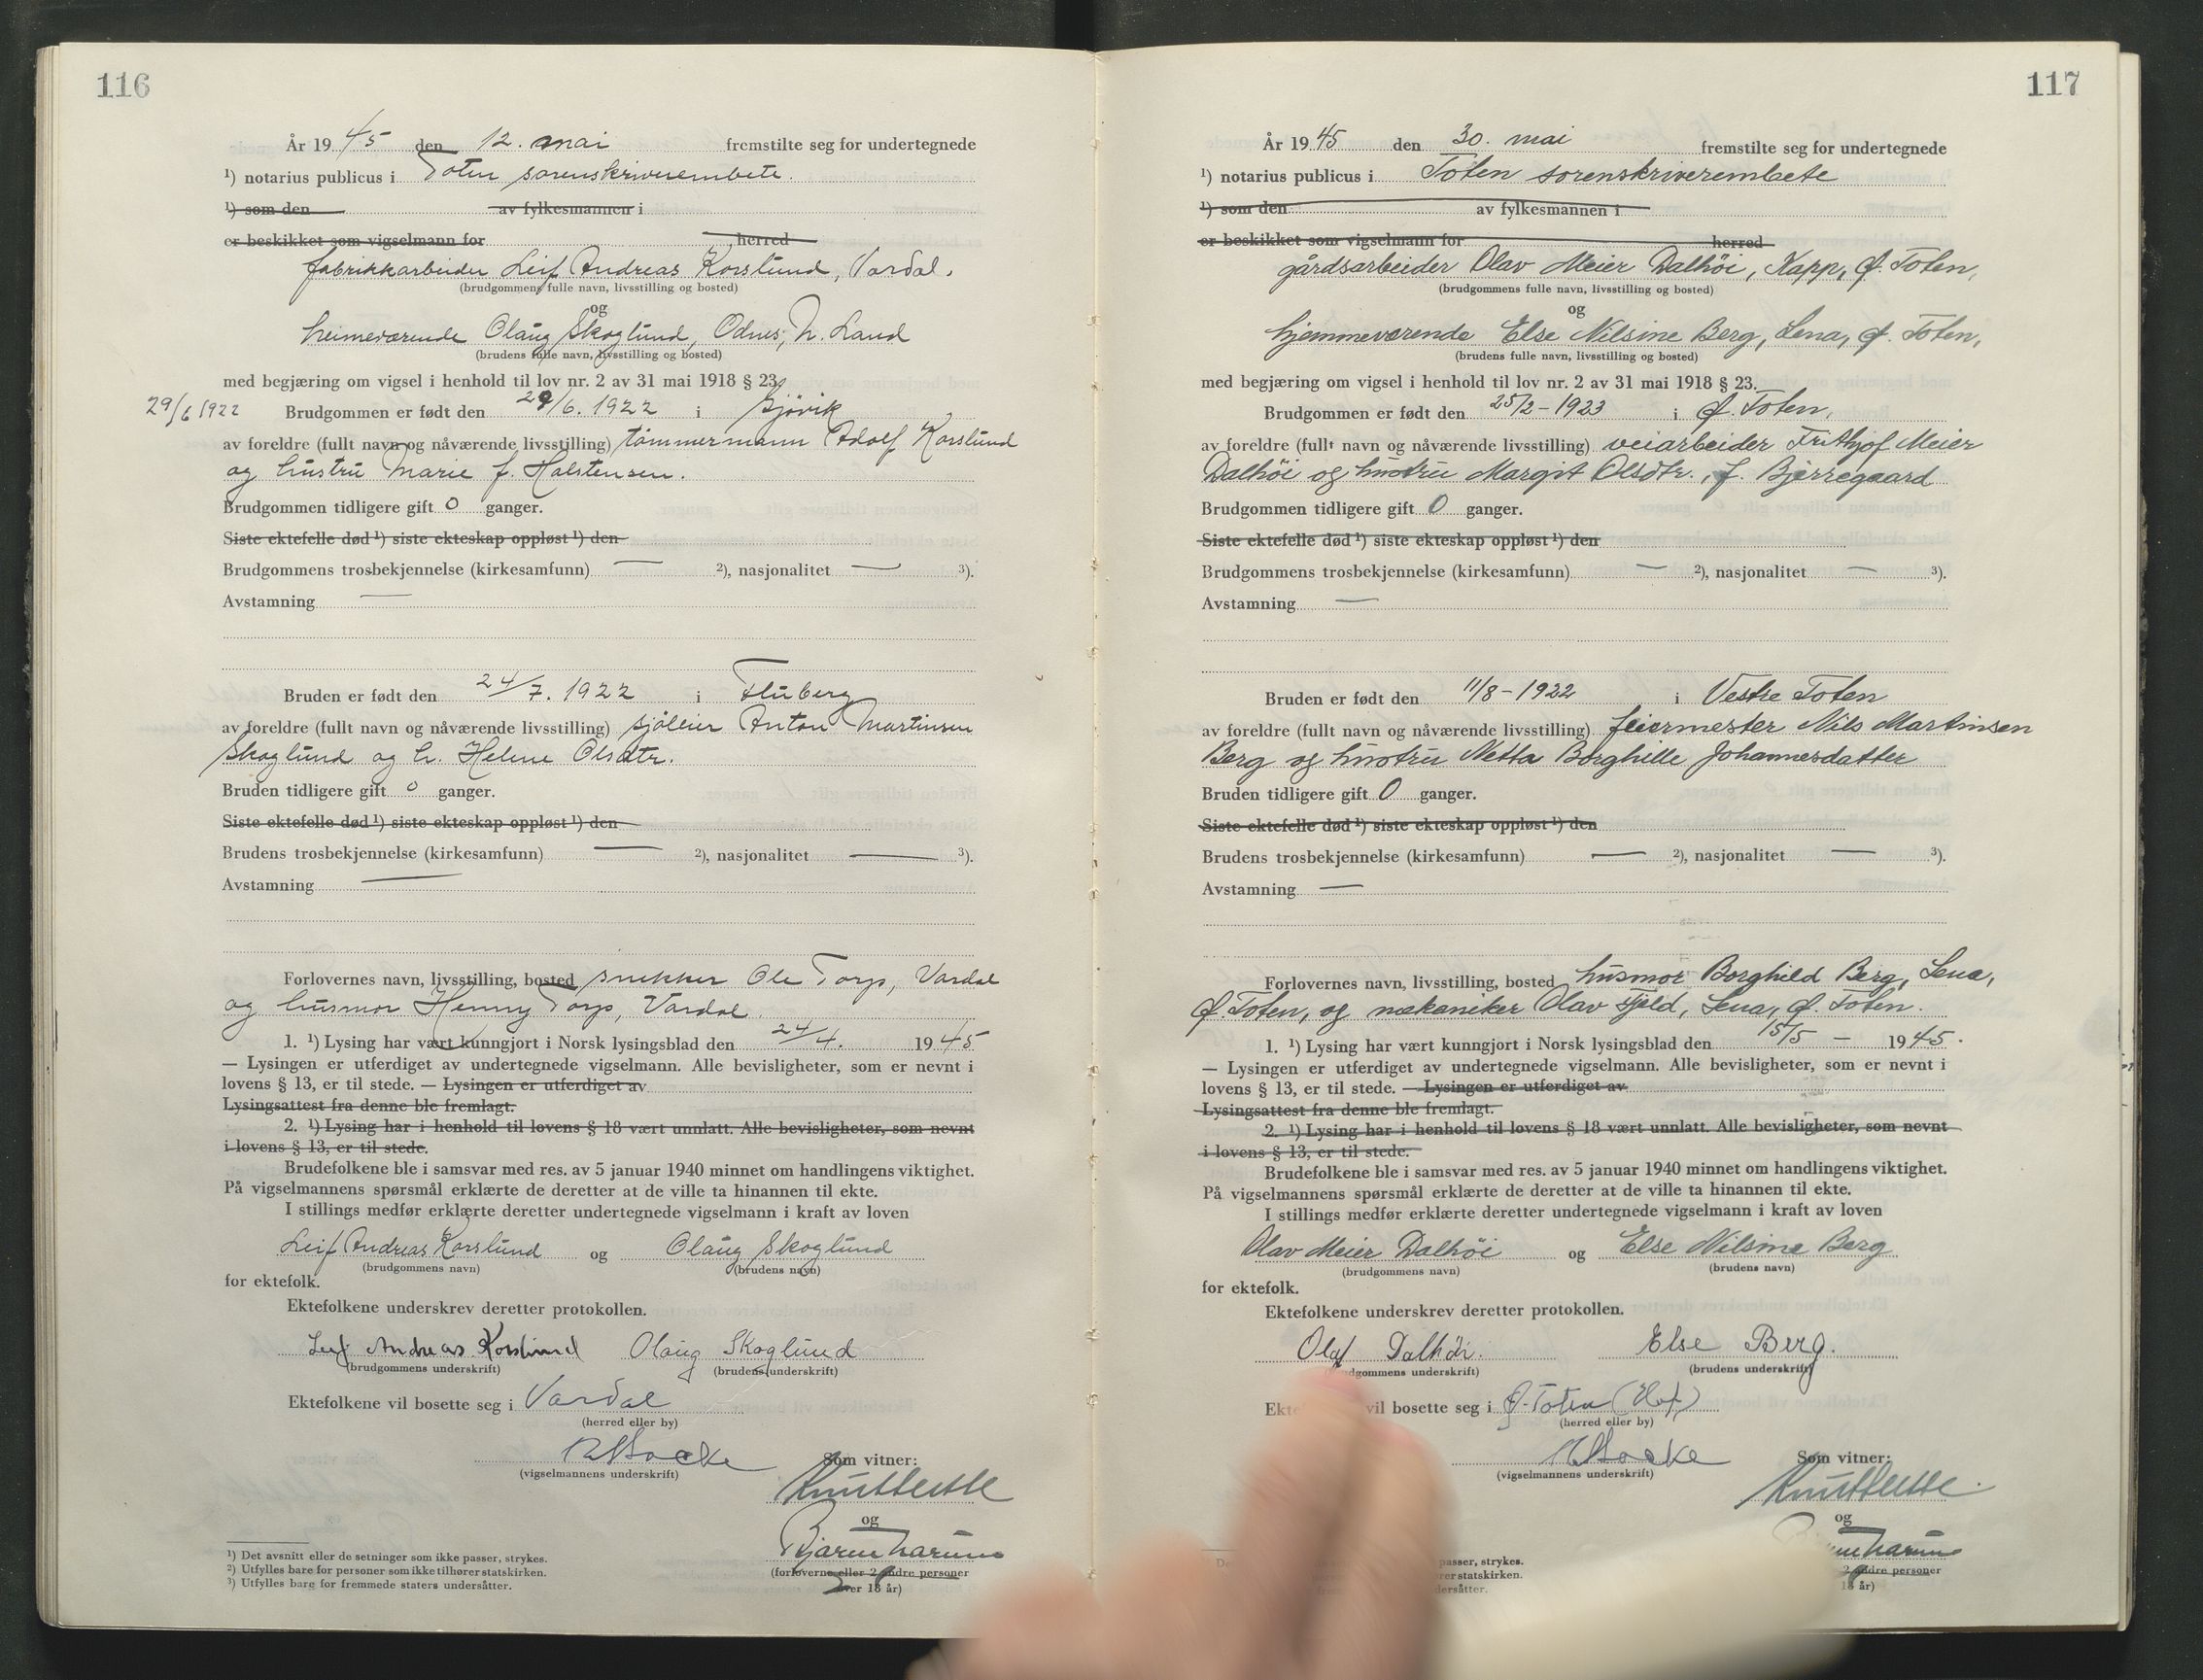 116
År 1945 den 12. mai fremstilte seg for undertegnede
¹) notarius publicus i Toten sorenskriverembete.
¹) som den av fylkesmannen i
er beskikket som vigselmann for herred
fabrikkarbeider Leif Andreas Korslund, Vardal.
(brudgommens fulle navn, livsstilling og bosted)
og
heimeværende Olaug Skoglund, Odnes, N. Land
(brudens fulle navn, livsstilling og bosted)
med begjæring om vigsel i henhold til lov nr. 2 av 31 mai 1918 § 23.
29/6 1922 Brudgommen er født den 29/6. 1922 i Gjövik
av foreldre (fullt navn og nåværende livsstilling) tömmermann Adolf Korslund
og hustru Marie f. Halstensen.
Brudgommen tidligere gift 0 ganger.
Siste ektefelle død ¹) siste ekteskap oppløst ¹) den
Brudgommens trosbekjennelse (kirkesamfunn) — ²), nasjonalitet — ³).
Avstamning —
Bruden er født den 24/7. 1922 i Fluberg
av foreldre (fullt navn og nåværende livsstilling) sjåleier Anton Martinsen
Skoglund og h. Helene Olsdtr.
Bruden tidligere gift 0 ganger.
Siste ektefelle død ¹) siste ekteskap oppløst ¹) den
Brudens trosbekjennelse (kirkesamfunn) — ²), nasjonalitet — ³).
Avstamning —
Forlovernes navn, livsstilling, bosted snekker Ole Torp, Vardal
og husmor Henny Torp, Vardal.
1. ¹) Lysing har vært kunngjort i Norsk lysingsblad den 24/4. 1945
— Lysingen er utferdiget av undertegnede vigselmann. Alle bevisligheter, som er nevnt i
lovens § 13, er til stede. — Lysingen er utferdiget av
Lysingsattest fra denne ble fremlagt.
2. ¹) Lysing har i henhold til lovens § 18 vært unnlatt. Alle bevisligheter, som nevnt
i lovens § 13, er til stede.
Brudefolkene ble i samsvar med res. av 5 januar 1940 minnet om handlingens viktighet.
På vigselmannens spørsmål erklærte de deretter at de ville ta hinannen til ekte.
I stillings medfør erklærte deretter undertegnede vigselmann i kraft av loven
Leif Andreas Korslund og Olaug Skoglund
(brudgommens navn) (brudens navn)
for ektefolk.
Ektefolkene underskrev deretter protokollen.
Leif Andreas Korslund Olaug Skoglund
(brudgommens underskrift) (brudens underskrift)
Ektefolkene vil bosette seg i Vardal
(herred eller by)
Som vitner:
(vigselmannens underskrift)
og
(forloverne eller 2 andre personer
over 18 år)
¹) Det avsnitt eller de setninger som ikke passer, strykes.
²) Utfylles bare for personer som ikke tilhører statskirken.
³) Utfylles bare for fremmede staters undersåtter.
117
År 1945 den 30. mai fremstilte seg for undertegnede
¹) notarius publicus i Toten sorenskriverembete
¹) som den av fylkesmannen i
er beskikket som vigselmann for herred
gårdsarbeider Olav Meier Dalhöi, Kapp, Ø. Toten,
(brudgommens fulle navn, livsstilling og bosted)
og
hjemmeværende Else Nilsine Berg, Lena, Ø. Toten,
(brudens fulle navn, livsstilling og bosted)
med begjæring om vigsel i henhold til lov nr. 2 av 31 mai 1918 § 23.
Brudgommen er født den 25/2 - 1923 i Ø. Toten,
av foreldre (fullt navn og nåværende livsstilling) veiarbeider Frithjof Meier
Dalhöi og hustru Margit Olsdtr., f. Bjerregaard
Brudgommen tidligere gift 0 ganger.
Siste ektefelle død ¹) siste ekteskap oppløst ¹) den
Brudgommens trosbekjennelse (kirkesamfunn) — ²), nasjonalitet — ³).
Avstamning —
Bruden er født den 11/8 - 1922 i Vestre Toten
av foreldre (fullt navn og nåværende livsstilling) feiermester Nils Martinsen
Berg og hustru Netta Borghille Johannesdatter
Bruden tidligere gift 0 ganger.
Siste ektefelle død ¹) siste ekteskap oppløst ¹) den
Brudens trosbekjennelse (kirkesamfunn) — ²), nasjonalitet — ³).
Avstamning —
Forlovernes navn, livsstilling, bosted husmor Borghild Berg, Lena,
Ø. Toten, og mekaniker Olav Fjeld, Lena, Ø. Toten.
1. ¹) Lysing har vært kunngjort i Norsk lysingsblad den 15/5 — 1945.
— Lysingen er utferdiget av undertegnede vigselmann. Alle bevisligheter, som er nevnt i
lovens § 13, er til stede. — Lysingen er utferdiget av
Lysingsattest fra denne ble fremlagt.
2. ¹) Lysing har i henhold til lovens § 18 vært unnlatt. Alle bevisligheter, som nevnt
i lovens § 13, er til stede.
Brudefolkene ble i samsvar med res. av 5 januar 1940 minnet om handlingens viktighet.
På vigselmannens spørsmål erklærte de deretter at de ville ta hinannen til ekte.
I stillings medfør erklærte deretter undertegnede vigselmann i kraft av loven
Olav Meier Dalhöi og Else Nilsine Berg
(brudgommens navn) (brudens navn)
for ektefolk.
Ektefolkene underskrev deretter protokollen.
Olaf Dalhöi. Else Berg.
gommens underskrift) (brudens underskrift)
Ekte vil bosette seg i Ø. Toten (Hof)
(herred eller by)
Som vitner:
(vigselmannens underskrift)
og
2 andre personer
18 år)
passer, strykes.
rer statskirken.
dersåtter.